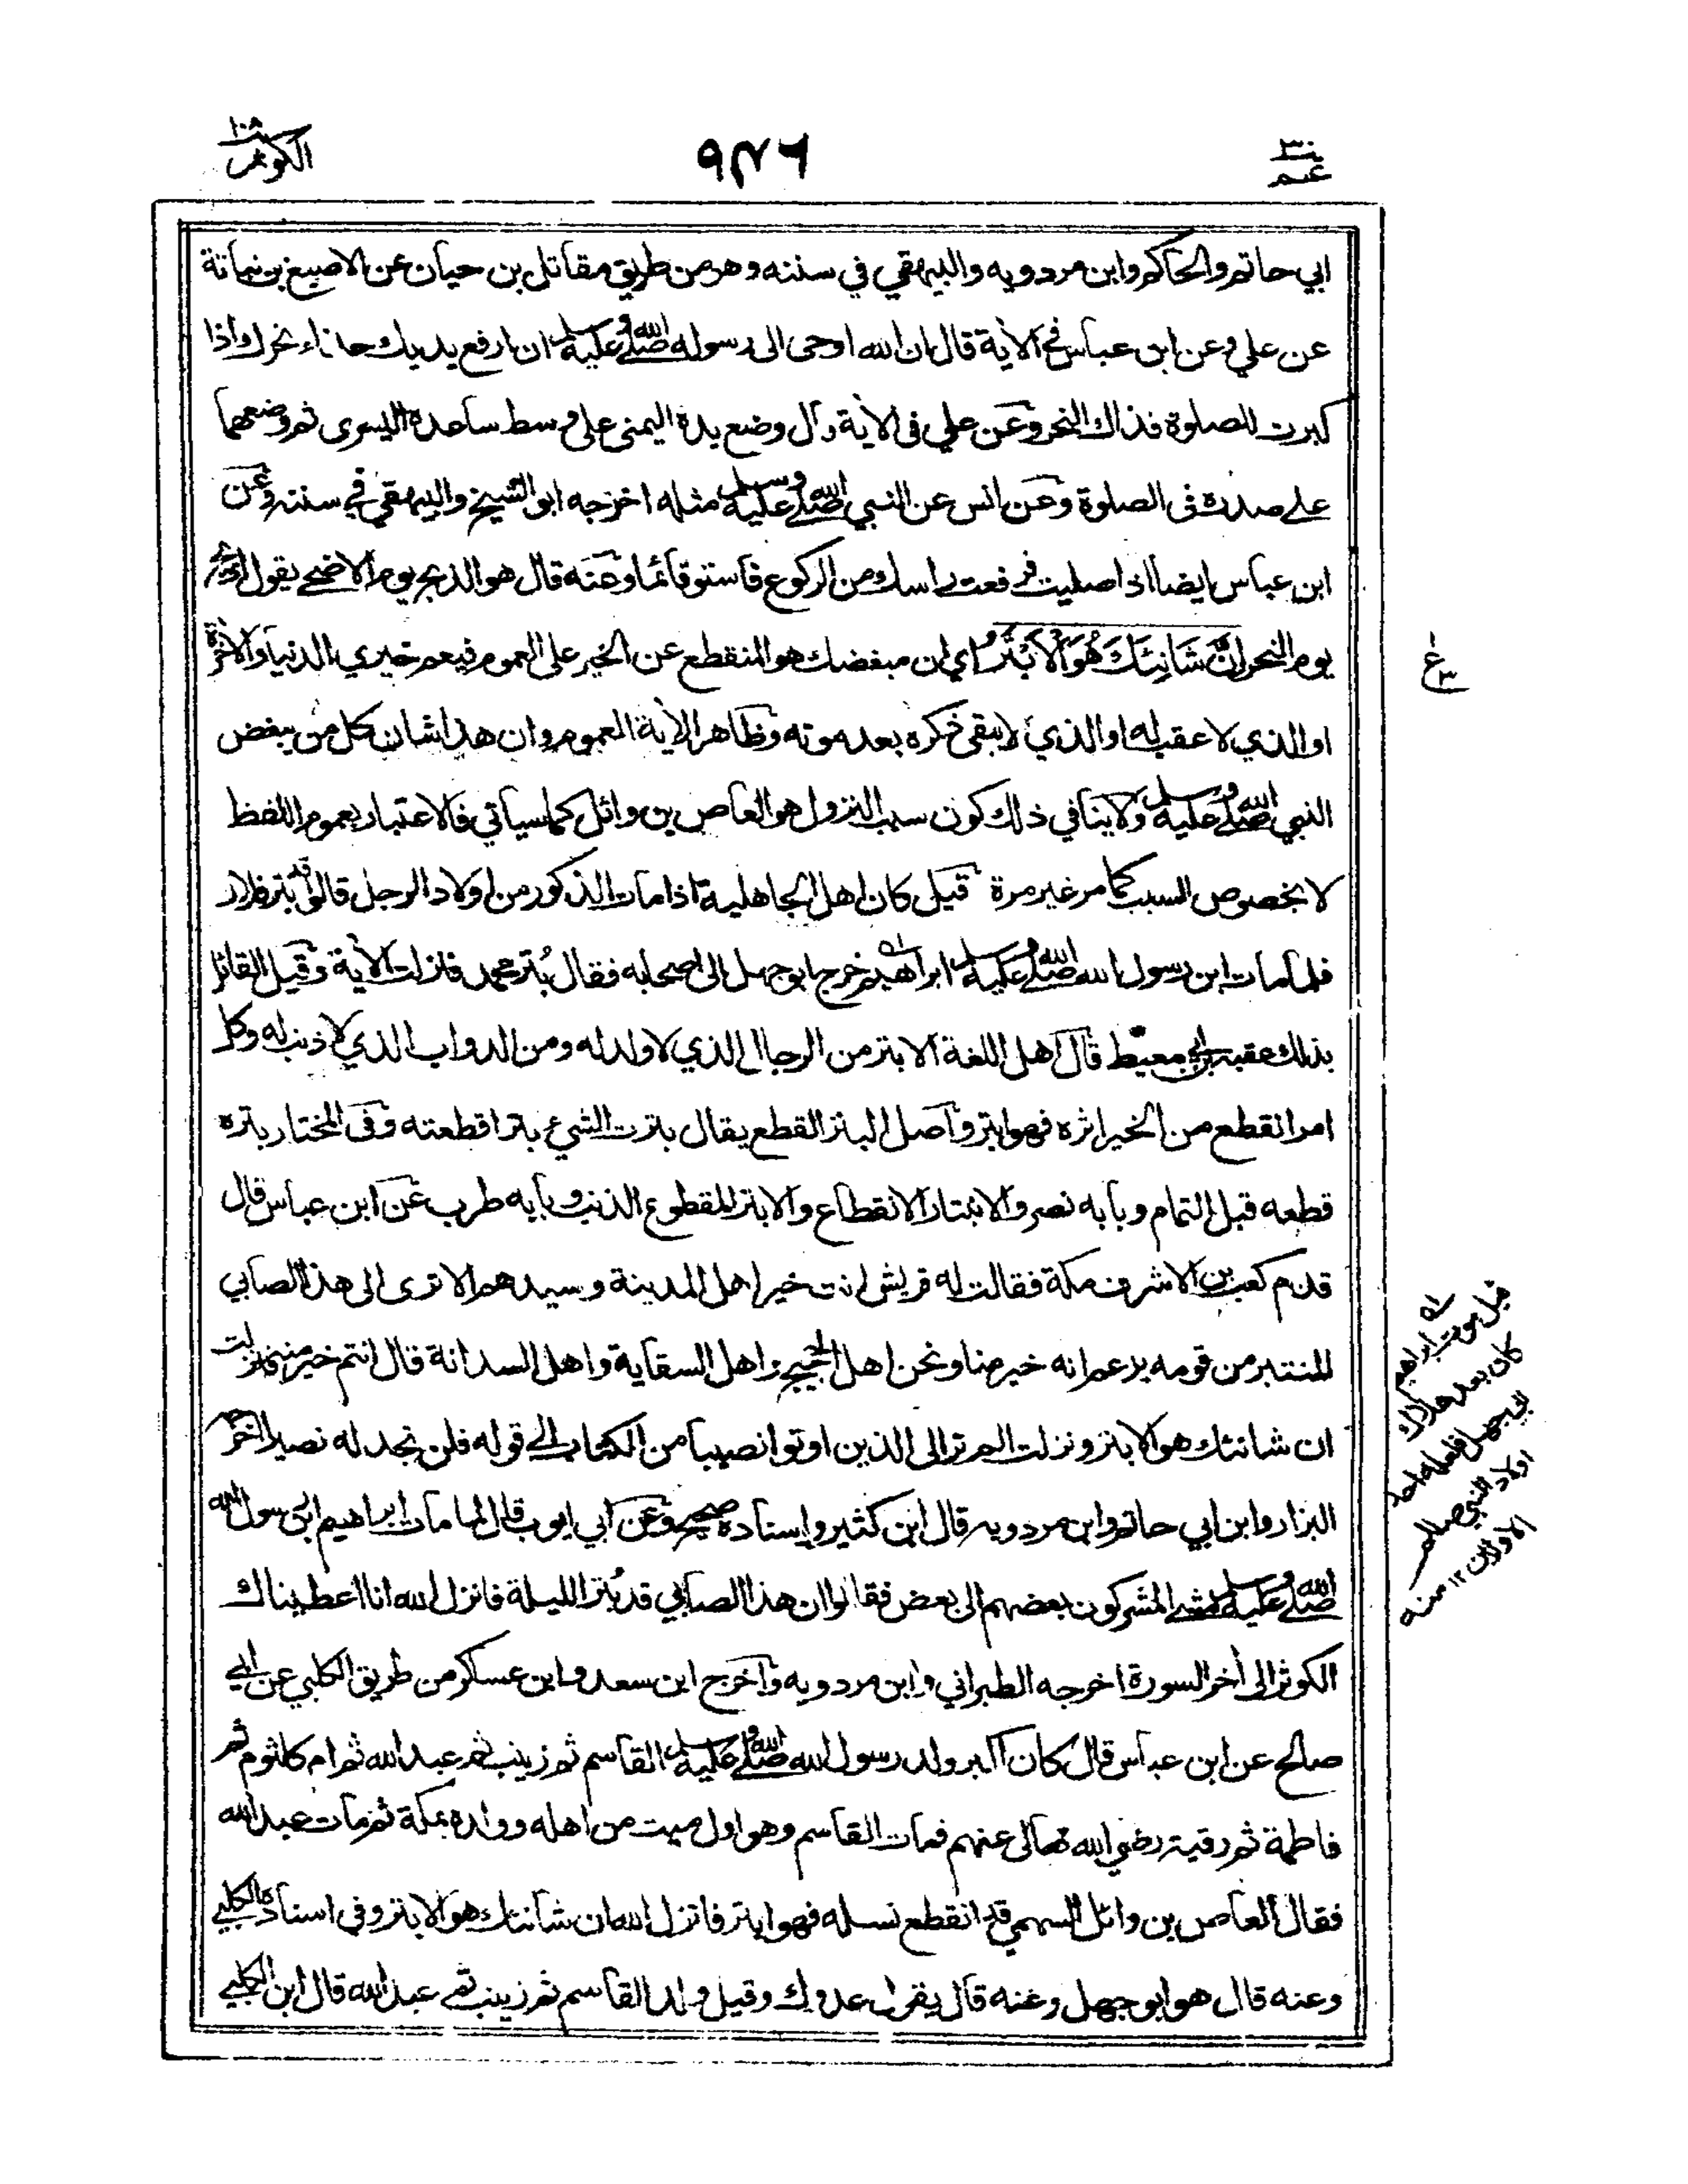 ٣٠ عم
٩٧٦
١٠٨ الكوثر
ابي حاتم والحاكم وابن مردويه والبيهقي في سننه وهو من طريق مقاتل بن حيان عن الاصبغ بن نباتة
عن علي وعن ابن عباس في الآية قال ان الله اوحى الى رسوله صلى الله عليه وسلم ان ارفع يديك حذاء نحرك اذا
كبرت للصلوة فذاك النحر وعن علي في الآية قال وضع يده اليمنى على وسط ساعده اليسرى ثم وضعهما
على صدره في الصلوة وعن انس عن النبي صلى الله عليه وسلم مثله اخرجه ابو الشيخ والبيهقي في سننه وعن
ابن عباس ايضا اذا صليت فرفعت راسك من الركوع فاستو قائما وعنه قال هو الذبح يوم الاضحى يقول اذبح
يوم النحر اِنَّ شَانِئَكَ هُوَ الْاَبْتَرُ اي ان مبغضك هو المنقطع عن الخير على العموم فيعم خيري الدنيا والآخرة
او الذي لا عقب له او الذي لا يبقى ذكره بعد موته وظاهر الآية العموم وان هذا شان كل من يبغض
النبي صلى الله عليه وسلم ولا ينافي ذلك كون سبب النزول هو العاص بن وائل كما سيأتي فالاعتبار بعموم اللفظ
لا بخصوص السبب كما مر غير مرة قيل كان اهل الجاهلية اذا مات الذكور من اولاد الرجل قالوا قد بتر فلان
فلما مات ابن رسول الله صلى الله عليه وسلم ابراهيم خرج ابو جهل الى اصحابه فقال بُتر محمد فنزلت الآية وقيل القائل
بذلك عقبة بن ابي معيط قال اهل اللغة الابتر من الرجال الذي لا ولد له ومن الدواب الذي لا ذنب له وكل
امر انقطع من الخير اثره فهو ابتر وأصل البتر القطع يقال بترت الشيء بترا قطعته وفي المختار بتره
قطعه قبل التمام وبابه نصر والانبتار الانقطاع والابتر المقطوع الذنب وبابه طرب عن ابن عباس قال
قدم كعب بن الاشرف مكة فقالت له قريش انت خير اهل المدينة وسيدهم الا ترى الى هذا الصابي
المنتبر من قومه يزعم انه خير منا ونحن اهل الحجيج واهل السقاية واهل السدانة قال انتم خير منه فنزلت
ان شانئك هو الابتر ونزلت الم تر الى الذين اوتوا نصيبا من الكتاب الى قوله فلن تجد له نصيرا اخرجه
البزار وابن ابي حاتم وابن مردويه قال ابن كثير واسناده صحيح وعن ابي ايوب قال لما مات ابراهيم ابن رسول الله
صلى الله عليه وسلم مشى المشركون بعضهم الى بعض فقالوا ان هذا الصابي قد بُتر الليلة فانزل الله انا اعطيناك
الكوثر الى أخر السورة اخرجه الطبراني وابن مردويه وأخرج ابن سعد وابن عساكر من طريق الكلبي عن ابي
صالح عن ابن عباس قال كان اكبر ولد رسول الله صلى الله عليه وسلم القاسم ثم زينب ثم عبد الله ثم ام كلثوم ثم
فاطمة ثم رقية رضي الله تعالى عنهم فمات القاسم وهو اول ميت من اهله وولده بمكة ثم مات عبد الله
فقال العاص بن وائل السهمي قد انقطع نسله فهو ابتر فانزل الله ان شانئك هو الابتر وفي اسناده الكلبي
وعنه قال هو ابو جهل وعنه قال يقول عدوك وقيل ولد القاسم ثم زينب ثم عبد الله قال ابن الكلبي
ع ٣
قيل موت ابراهيم
كان بعد هلاك
ابي جهل فلعله احد
اولاد النبي صلعم
الاولين ١٢ منه